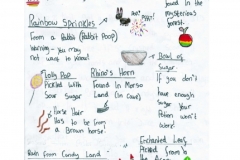 found in the
mysterious
forest.
Rainbow Sprinkles
From a Rabbit (Rabbit Poop)
Warning - you may
not want to know!
Bowl of
Sugar
If you don't
have enough
Sugar your
Potion won't
work!
Lolly Pop
Pickled with
Sour Sugar
Rhino's Horn
Found in Merso
Land (in Cow)
Horse Hair
Has to be from
a Brown horse.
Enchanted Leaf
Picked from
Rain from Candy Land -